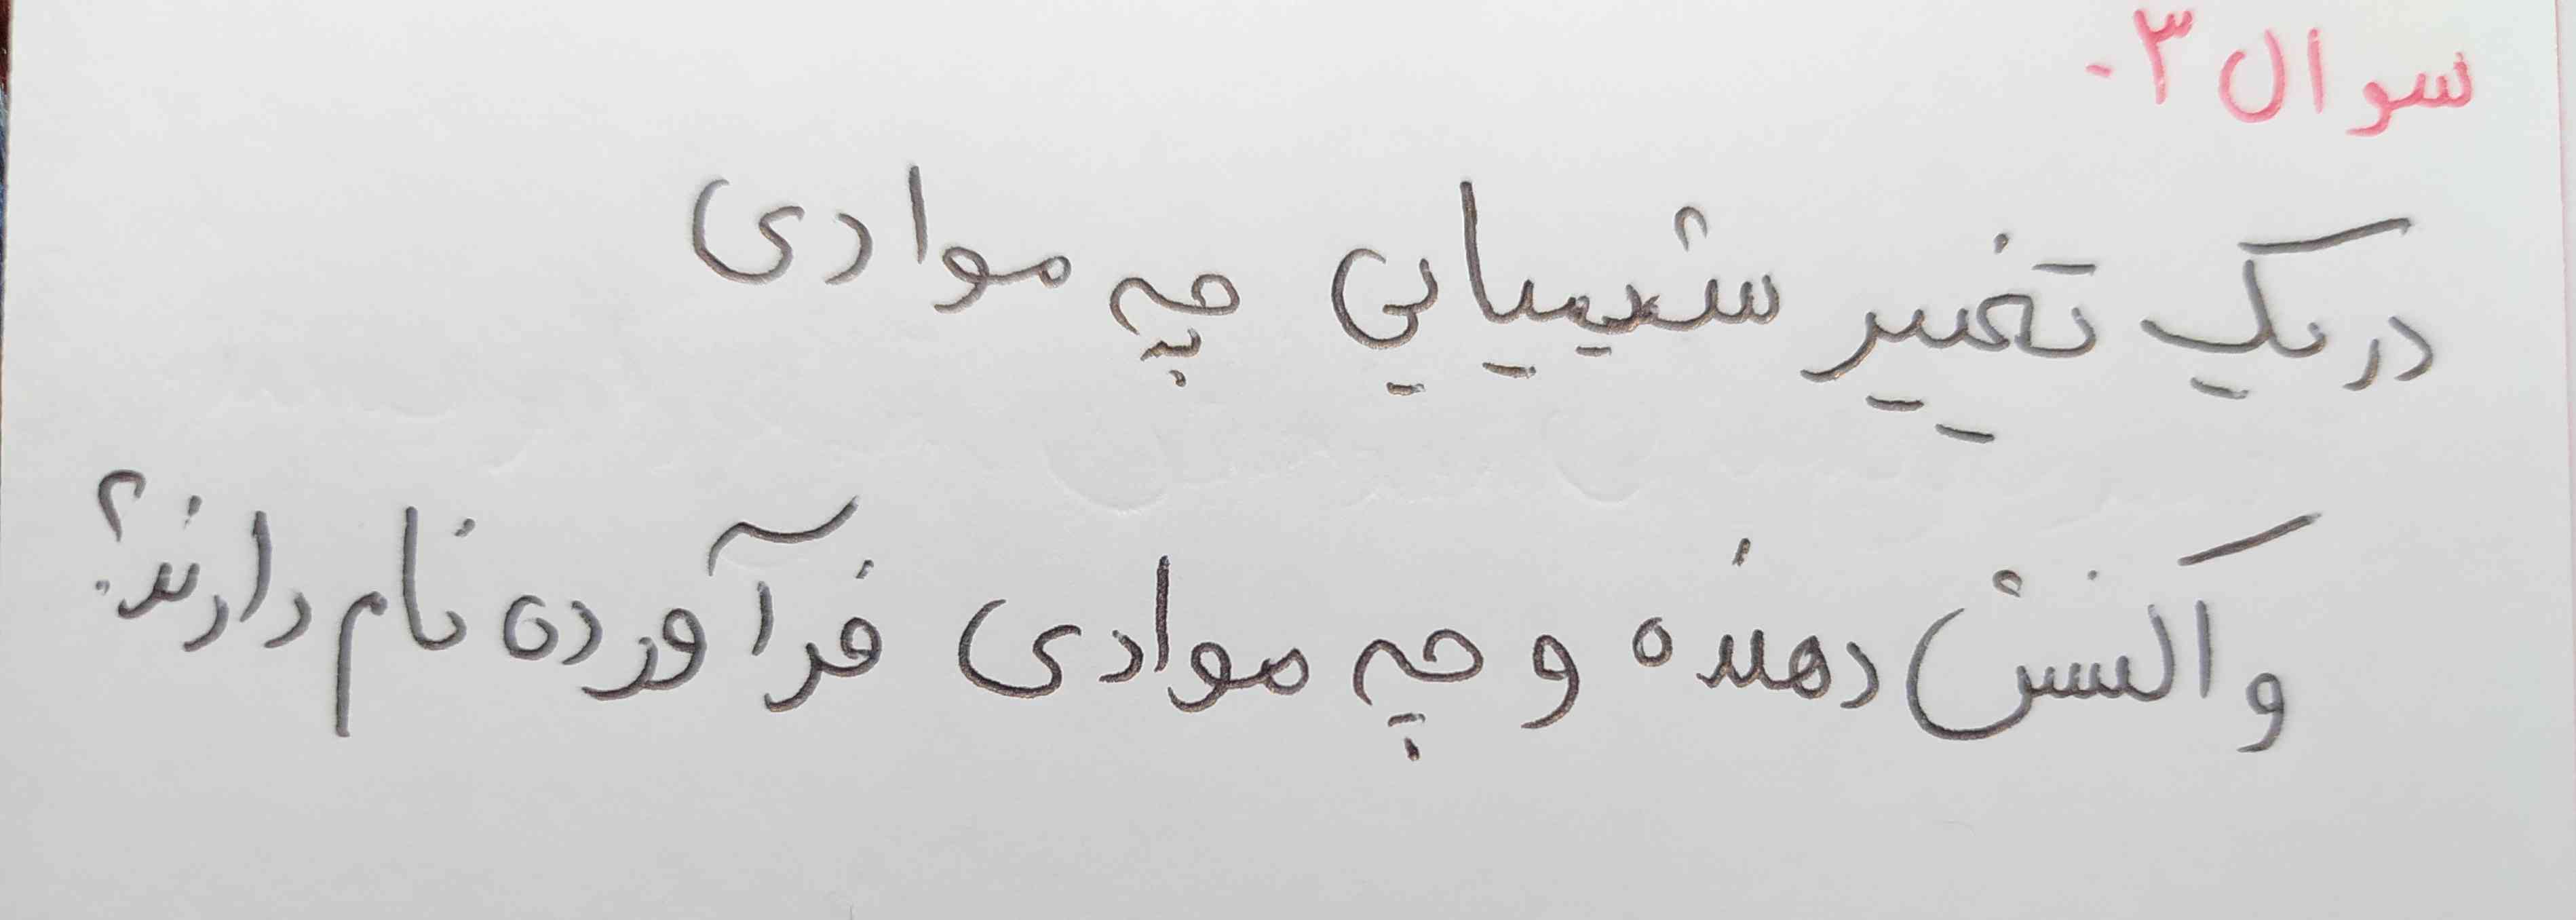 سوال ۳-
در یک تغییر شیمیایی چه موادی
واکنش دهنده و چه موادی فرآورده نام دارند؟